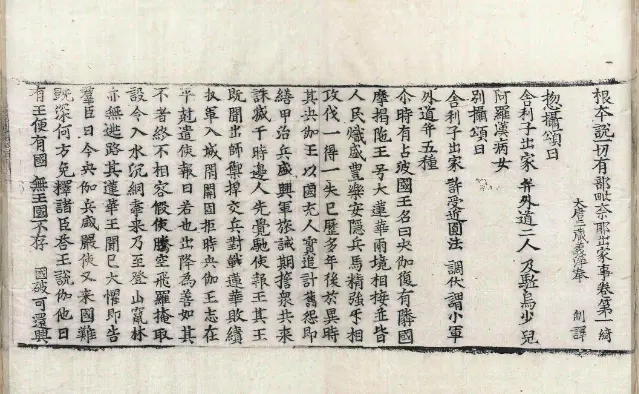 根本說一切有部毗奈耶出家事卷第一 綺
大唐三藏義淨奉 制譯
揔攝頌曰
舍利子出家 并外道二人 及驅烏少兒
阿羅漢病女
別攝頌曰
舍利子出家 許受近圓法 調伏謂小軍
外道并五種
尒時有占波國王名曰央伽復有隣國
摩揭陁王号大蓮華兩境相接並皆
人民熾盛豊樂安隱兵馬精強手相
攻伐一得一失已歷多年後於異時
其央伽王以國充人實追計舊怨即
繕甲治兵盛興軍旅誡期誓衆共來
誅滅于時邊人先覺馳使報王其王
既聞出師禦捍交兵對戰蓮華敗績
収軍入城閇關固拒時央伽王志在
平蕩遣使報曰若也出降為善如其
不者終不相容假使騰空飛羅掩取
設令入水沉網牽來乃至登山竄林
亦無逃路其蓮華王聞已大懼即告
羣臣曰今央伽兵威嚴俠又來國難
既深何方免釋諸臣荅王說伽他曰
有王便有國 無王國不存 國破可還興